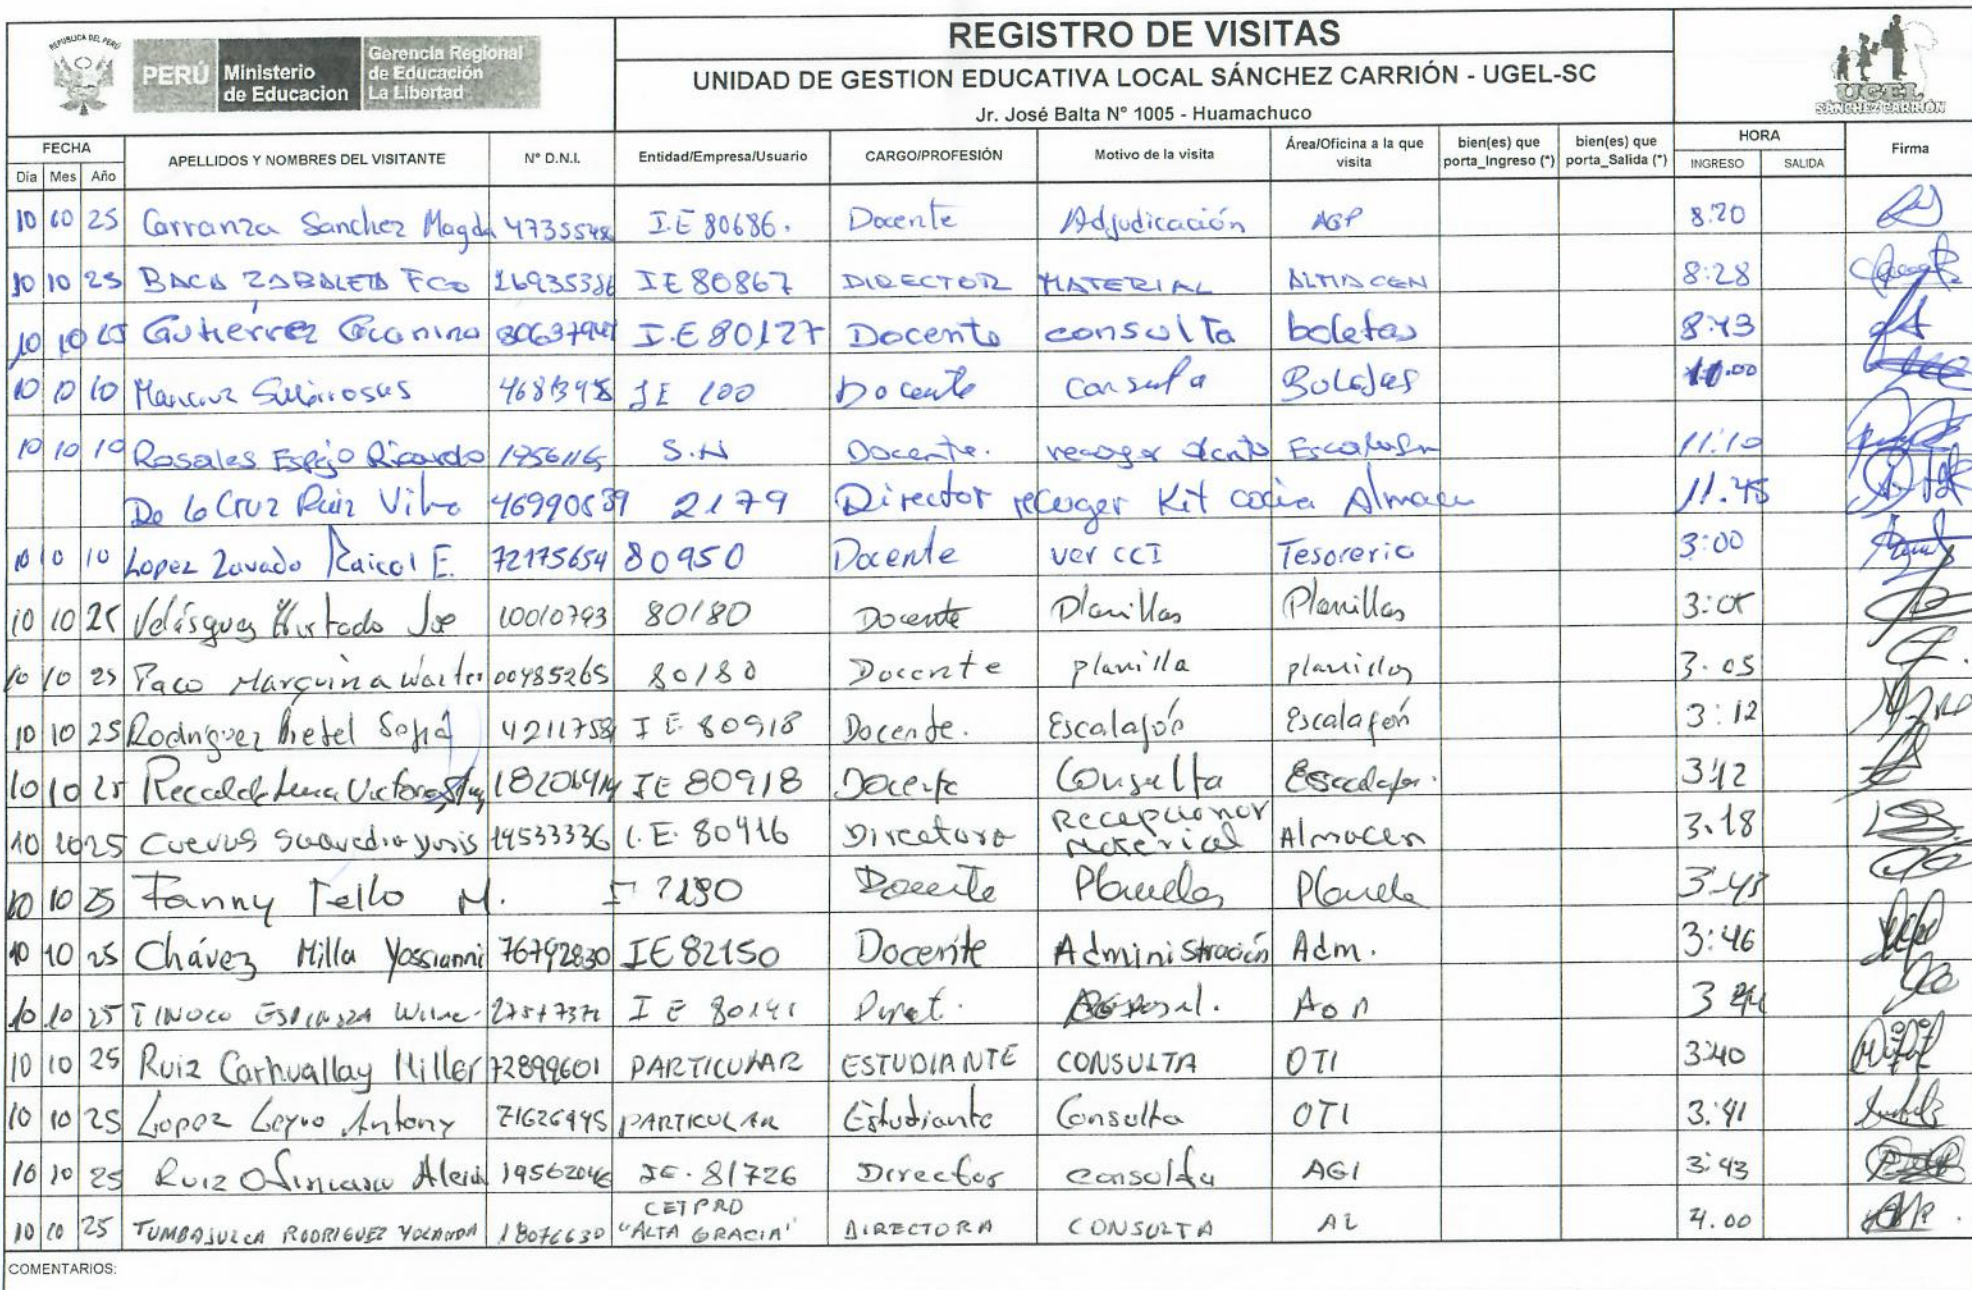 REPUBLICA DEL PERÚ
PERÚ Ministerio de Educacion Gerencia Regional de Educación La Libertad
REGISTRO DE VISITAS
UNIDAD DE GESTION EDUCATIVA LOCAL SÁNCHEZ CARRIÓN - UGEL-SC
Jr. José Balta N° 1005 - Huamachuco
UGEL
SÁNCHEZ CARRIÓN
FECHA APELLIDOS Y NOMBRES DEL VISITANTE N° D.N.I. Entidad/Empresa/Usuario CARGO/PROFESIÓN Motivo de la visita Área/Oficina a la que visita bien(es) que porta_Ingreso (*) bien(es) que porta_Salida (*) HORA Firma
Día Mes Año INGRESO SALIDA
10 25 Carranza Sanchez Magda I.E 80686. Docente Adjudicación AGP 8:20
10 10 25 BACA ZABALETA FCO IE 80867 DIRECTOR MATERIAL ALMACEN 8:28
10 10 Gutierrez I.E 80127 Docente consulta boletas 8:43
10 10 10 IE 100 Docente consulta Boletas 11.00
10 10 10 Rosales Espejo Ricardo S.N Docente. recoger Escalafon 11:10
De la Cruz Ruiz 2179 Director recoger Kit Almacen 11.45
10 10 10 Lopez Zavado Raicol E. 72175654 80950 Docente ver CCI Tesoreria 3:00
10 10 25 Velásquez Hurtado 10010793 80180 Docente Planillas Planillas 3:05
10 10 25 Paco Marquina Walter 00485265 80180 Docente planilla planillas 3.05
10 10 25 Rodriguez Sofia I E 80918 Docente. Escalafón Escalafón 3:12
10 10 25 IE 80918 Docente Consulta Escalafon. 3:12
10 10 25 Cuevas Saavedra 19533336 I.E. 80416 Directora Recepcionar Material Almacen 3.18
10 10 25 Fanny Tello M. Docente Planilla 3:43
10 10 25 Chávez Milla Yossianni 76792830 IE 82150 Docente Administración Adm. 3:46
10 10 25 TINOCO ESPINOZA I E 80141 Direct.
10 10 25 Ruiz Carhuallay Miller 72899601 PARTICULAR ESTUDIANTE CONSULTA OTI 3:40
10 10 25 Lopez Leyva Antony 71626995 PARTICULAR Estudiante Consulta OTI 3:41
10 10 25 Ruiz IE. 81726 Director consulta AGI 3:43
10 10 25 TUMBAJULCA RODRIGUEZ YOLANDA 18076630 CETPRO "ALTA GRACIA" DIRECTORA CONSULTA 4.00
COMENTARIOS: